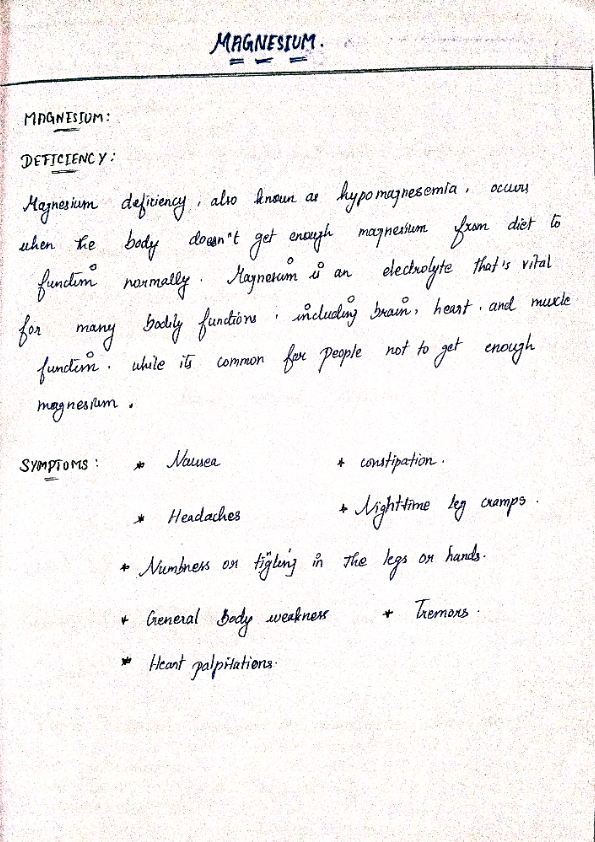 MAGNESIUM.
MAGNESIUM:
DEFICIENCY:
Magnesium deficiency, also known as hypomagnesemia, occurs
when the body doesn"t get enough magnesium from diet to
function normally. Magnesium is an electrolyte that's vital
for many bodily functions, including brain, heart, and muscle
function. while its common for people not to get enough
magnesium.
SYMPTOMS: * Nausea * constipation.
* Headaches * Nighttime leg cramps.
* Numbness or tigling in the legs or hands.
* General Body weakness * Tremors.
* Heart palpitations.